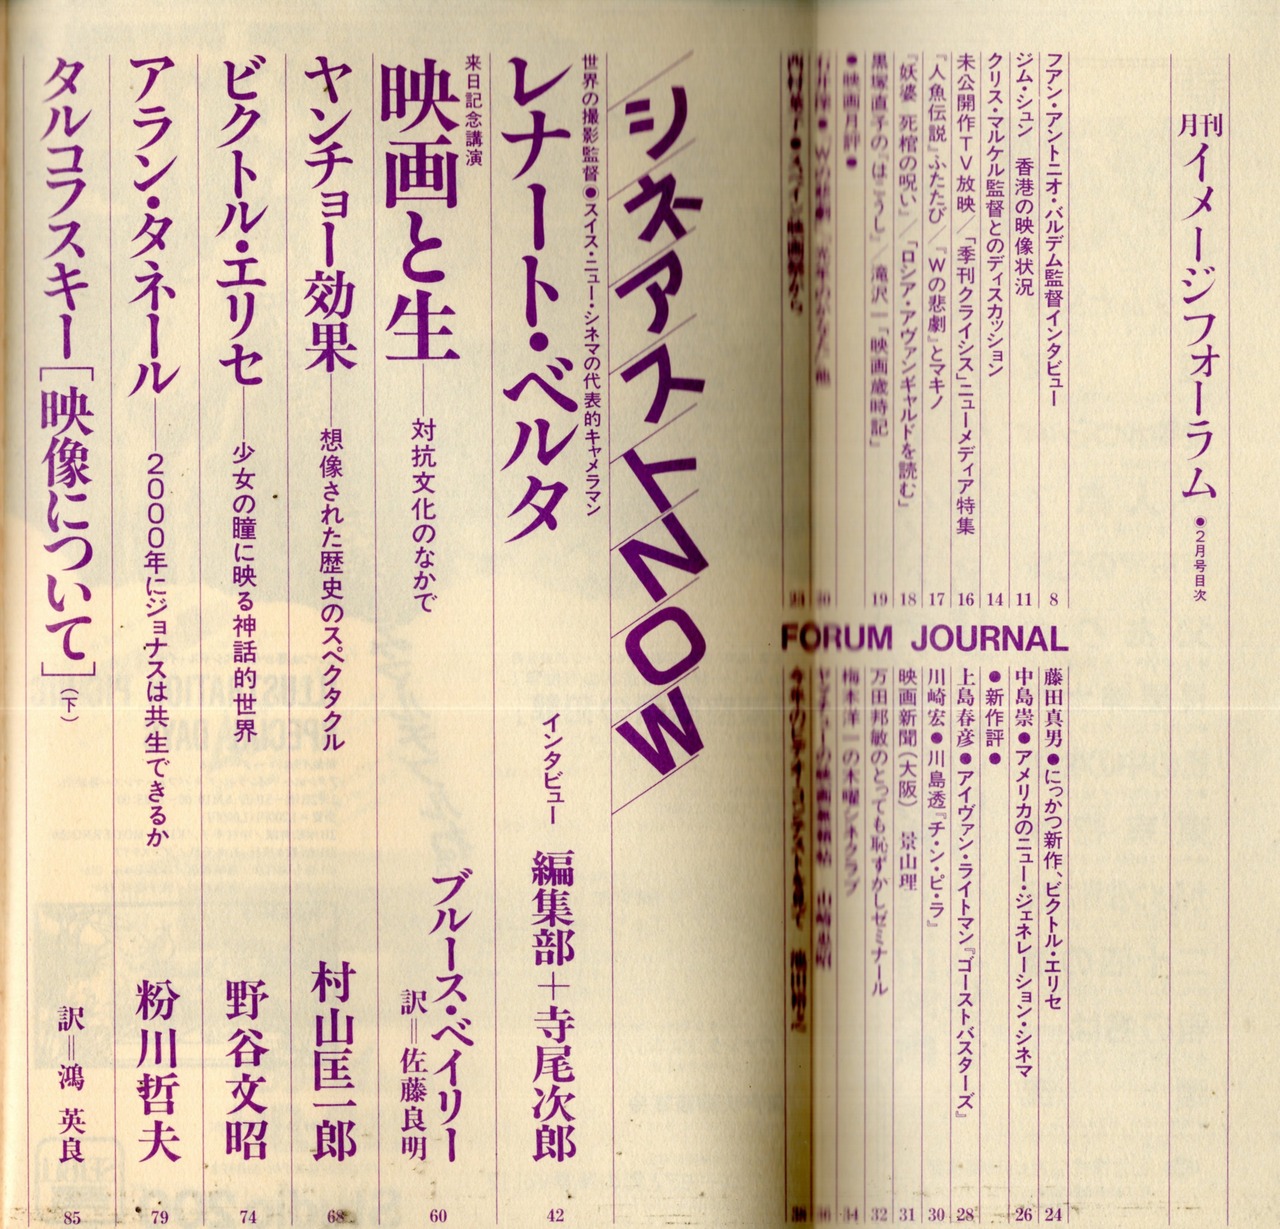 月刊イメージフォーラム ●2月号目次
フアン・アントニオ・バルデム監督インタビュー 8
ジム・シュン 香港の映像状況 11
クリス・マルケル監督とのディスカッション 14
未公開作TV放映／「季刊クライシス」ニューメディア特集 16
『人魚伝説』ふたたび／『Wの悲劇』とマキノ 17
『妖婆 死棺の呪い』／『ロシア・アヴァンギャルドを読む』 18
黒塚直子の「はこうし」／滝沢一「映画歳時記」 19
●映画月評●
『Wの悲劇』 他 20
●スペイン映画祭から 23
FORUM JOURNAL
藤田真男●にっかつ新作、ビクトル・エリセ 24
中島崇●アメリカのニュー・ジェネレーション・シネマ 26
●新作評●
上島春彦●アイヴァン・ライトマン『ゴーストバスターズ』 28
川崎宏●川島透『チ・ン・ピ・ラ』 30
映画新聞（大阪） 景山理 31
万田邦敏のとっても恥ずかしゼミナール 32
梅本洋一の木曜シネクラブ 34
36
38
シネアストNOW
世界の撮影監督●スイス・ニュー・シネマの代表的キャメラマン
レナート・ベルタ インタビュー 編集部＋寺尾次郎 42
来日記念講演
映画と生──対抗文化のなかで ブルース・ベイリー 訳＝佐藤良明 60
ヤンチョー効果──想像された歴史のスペクタクル 村山匡一郎 68
ビクトル・エリセ──少女の瞳に映る神話的世界 野谷文昭 74
アラン・タネール──2000年にジョナスは共生できるか 粉川哲夫 79
タルコフスキー［映像について］（下） 訳＝鴻 英良 85